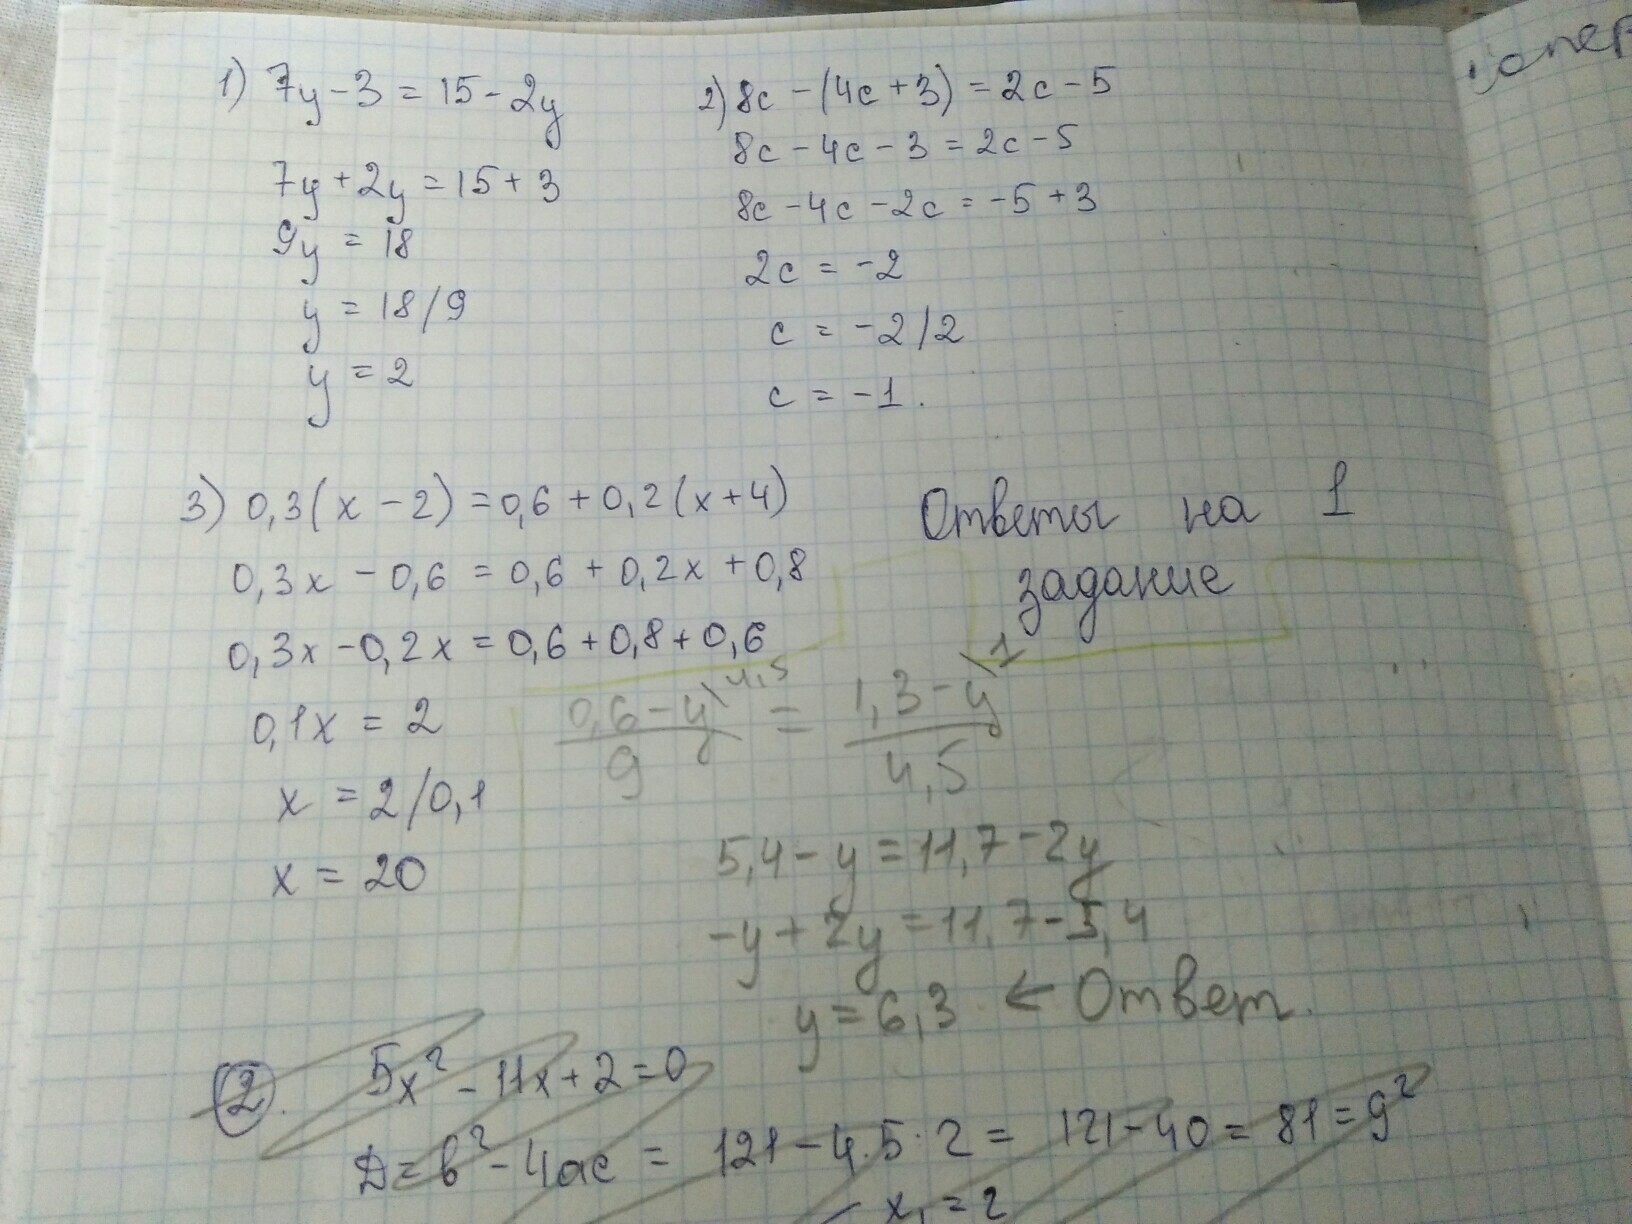 1) 7y-3=15-2y
7y+2y=15+3
9y=18
y=18/9
y=2
2) 8c-(4c+3)=2c-5
8c-4c-3=2c-5
8c-4c-2c=-5+3
2c=-2
c=-2/2
c=-1.
3) 0,3(x-2)=0,6+0,2(x+4)
0,3x-0,6=0,6+0,2x+0,8
0,3x-0,2x=0,6+0,8+0,6
0,1x=2
x=2/0,1
x=20
Ответы на 1
задание
0,6-y\4,5 / 9 = 1,3-y\1 / 4,5
5,4-y=11,7-2y
-y+2y=11,7-5,4
y=6,3 ← Ответ.
2. 5x²-11x+2=0
Д=b²-4ac=121-4·5·2=121-40=81=9²
x₁=2